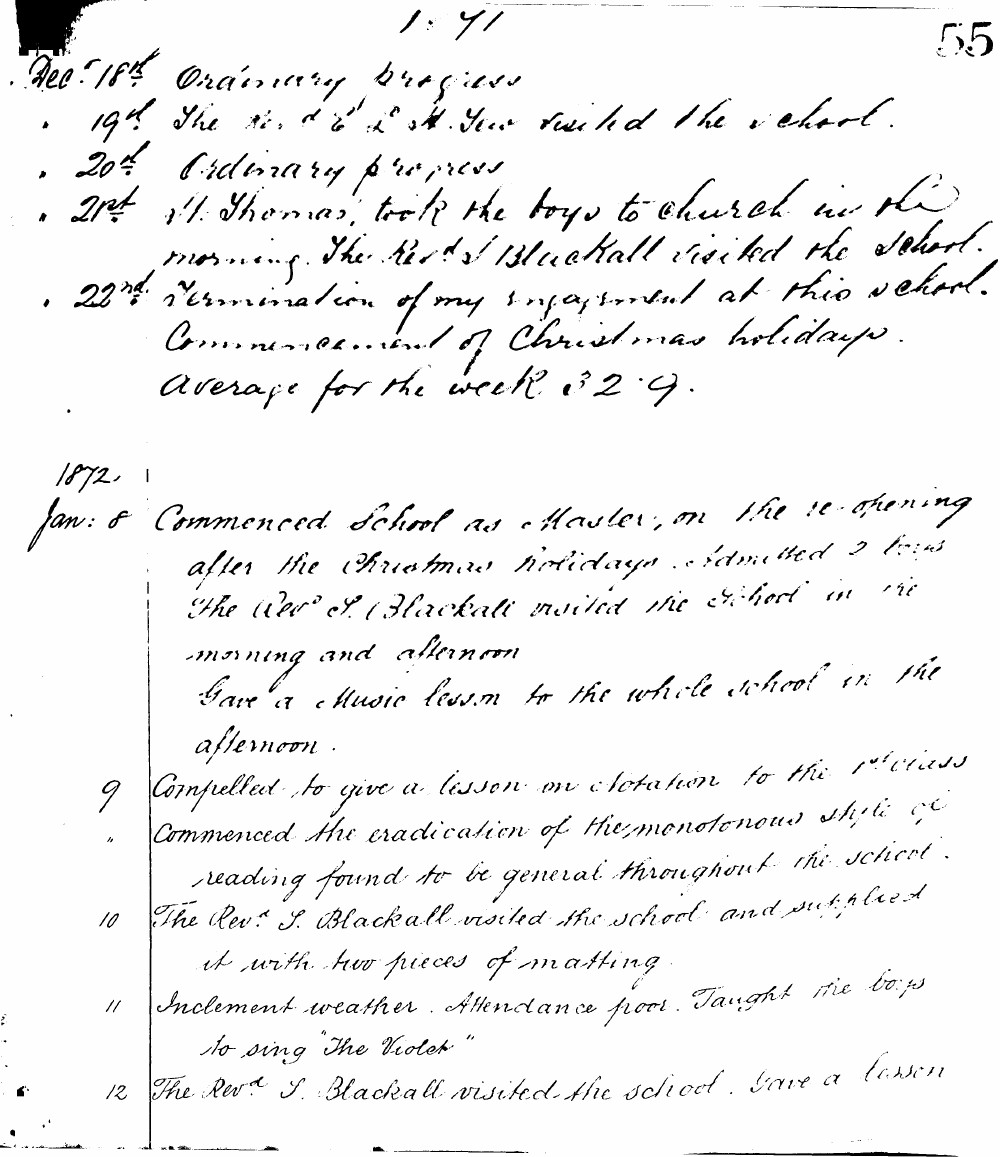 1871
55
Decr 18th Ordinary progress
" 19th The Revd E L H. Tew visited the school.
" 20th Ordinary progress
" 21st St. Thomas', took the boys to church in the
morning. The Revd S Blackall visited the school.
" 22nd Termination of my engagement at this school.
Commencement of Christmas holidays.
Average for the week 32.9.
1872.
Jan: 8 Commenced School as Master, on the re-opening
after the Christmas holidays. Admitted 2 boys
The Revd S. Blackall visited the School in the
morning and afternoon
Gave a Music lesson to the whole school in the
afternoon.
9 Compelled to give a lesson on Notation to the 1st class
" Commenced the eradication of the monotonous style of
reading found to be general throughout the school.
10 The Revd S. Blackall visited the school and supplied
it with two pieces of matting
11 Inclement weather. Attendance poor. Taught the boys
to sing "The Violet"
12 The Revd S. Blackall visited the school. Gave a lesson